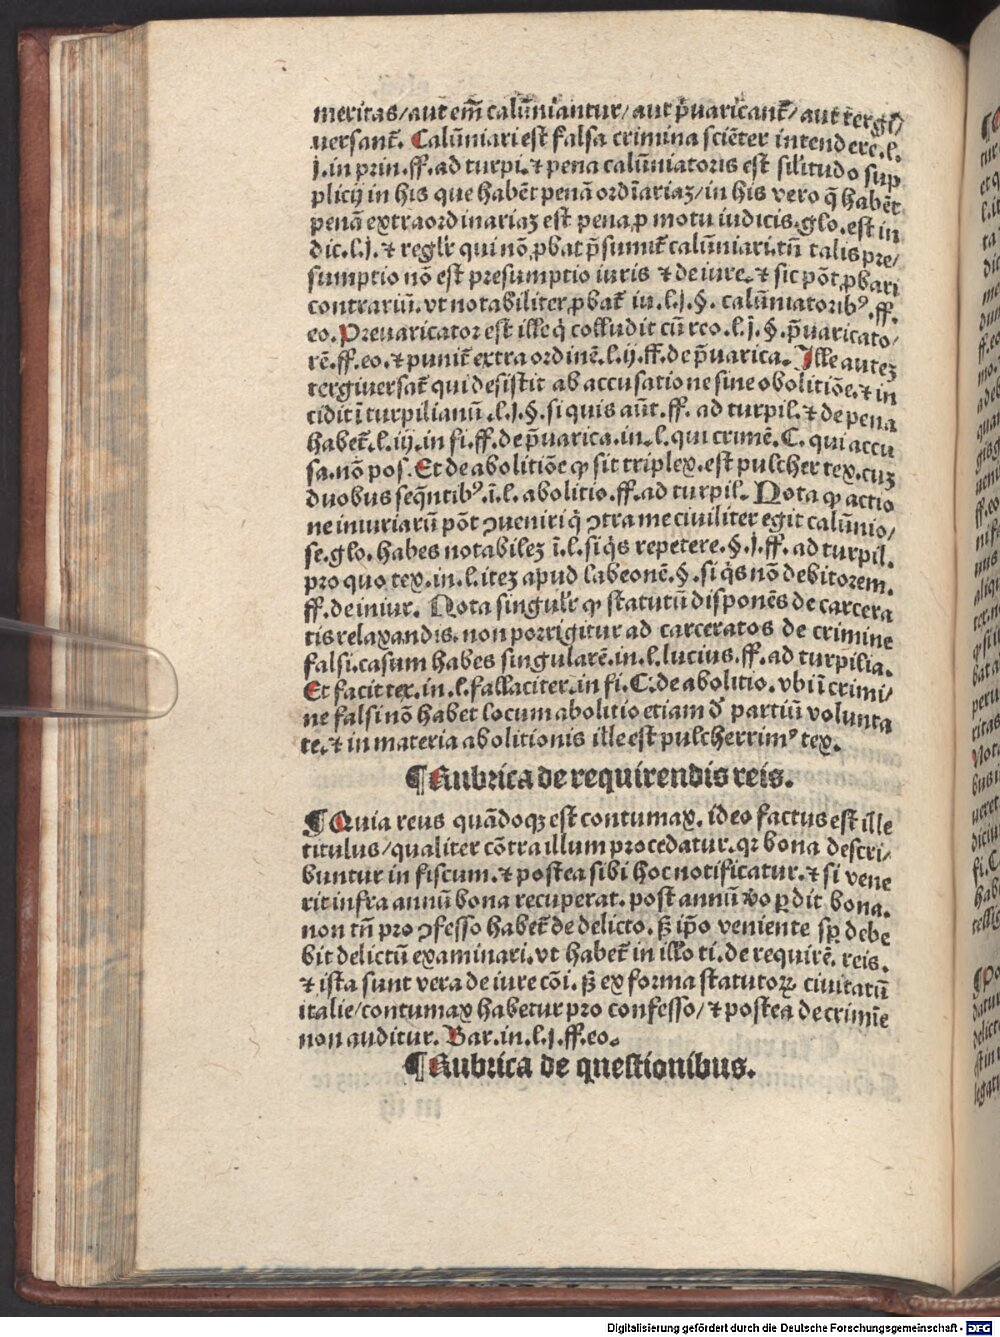 meritas/aut em̄ calūniantur/aut p̄uaricant᷑/aut tergi
uersant᷑. Calūniari est falsa crimina sciēter intendere.l.
j.in prin.ff.ad turpi.⁊ pena calūniatoris est sil'itudo sup
plicij in his que habēt penā ordīariaꝫ/in his vero q̄ habēt
penā extraordinariaꝫ est pena ꝓ motu iudicis.glo.est in
dic.l.j.⁊ regl'r qui nō ꝓbat p̄sumit᷑ calūniari.tn̄ talis pre/
sumptio nō est presumptio iuris ⁊ de iure.⁊ sic pōt ꝓbari
contrariū.vt notabiliter ꝓbat᷑ in.l.j.§. calūniatorib⁹.ff.
eo.Preuaricator est ille q̇ colludit cū reo.l.j.§.p̄uaricato/
rē.ff.eo.⁊ punit᷑ extra ordinē.l.ij.ff.de p̄uarica. Ille auteꝫ
tergiuersat᷑ qui desistit ab accusatione sine obolitiōe.⁊ in
cidit ī turpilianū.l.j.§.si quis aūt.ff. ad turpil.⁊ de pena
habet᷑.l.iij.in fi.ff.de p̄uarica.in.l.qui crimē.C. qui accu
sa.nō pos. Et de abolitiōe ꝙ sit triplex.est pulcher tex.cuꝫ
duobus seq̄ntib⁹.ī.l. abolitio.ff.ad turpil. Nota ꝙ actio
ne iniuriarū pōt ꝯueniri q̇ ꝯtra me ciuiliter egit calūnio/
se.glo. habes notabileꝫ ī.l.si q̇s repetere.§.j.ff. ad turpil.
pro quo tex.in.l.iteꝫ apud labeonē.§.si q̇s nō debitorem.
ff.de iniur. Nota singul'r ꝙ statutū disponēs de carcera
tis relaxandis.non porrigitur ad carceratos de crimine
falsi.casum habes singularē.in.l.lucius.ff.ad turpilia.
Et facit tex.in.l.fallaciter.in fi.C.de abolitio.vbi ī crimi/
ne falsi nō habet locum abolitio etiam d' partiū volunta
te.⁊ in materia abolitionis ille est pulcherrim⁹ tex.
¶Rubrica de requirendis reis.
¶Quia reus quādoqꝫ est contumax. ideo factus est ille
titulus/qualiter cōtra illum procedatur.qꝛ bona descri/
buntur in fiscum.⁊ postea sibi hoc notificatur.⁊ si vene
rit infra annū bona recuperat. post annū v̄o ꝑdit bona.
non tn̄ pro ꝯfesso habet᷑ de delicto. sꝫ ip̄o veniente sp̄ debe
bit delictū examinari.vt habet᷑ in illo ti.de requirē. reis.
⁊ ista sunt vera de iure cōi. sꝫ ex forma statutoꝝ ciuitatū
italie/contumax habetur pro confesso/⁊ postea de crimīe
non auditur. Bar.in.l.j.ff.eo.
¶Rubrica de questionibus.
Digitalisierung gefördert durch die Deutsche Forschungsgemeinschaft - DFG